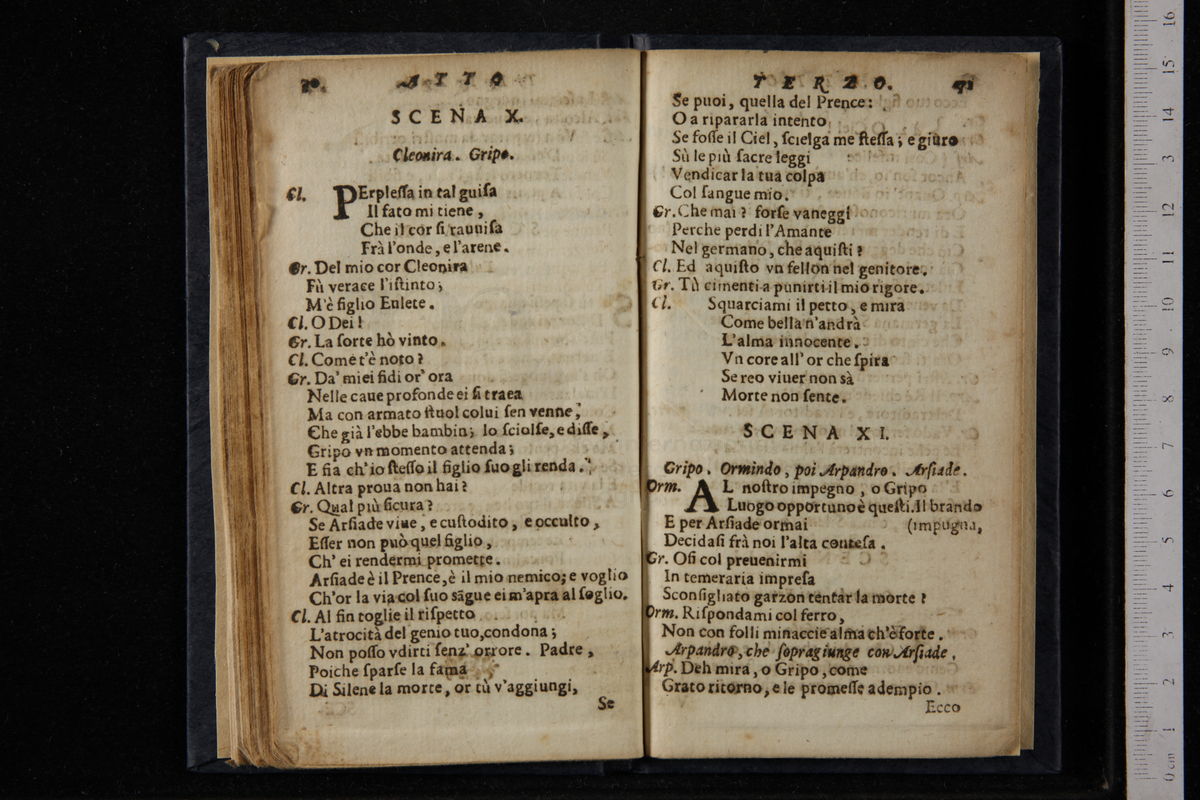 70. ATTO
SCENA X.
Cleonira. Gripo.
Cl. PErpleſſa in tal guiſa
Il fato mi tiene,
Che il cor ſi rauuiſa
Frà l'onde, e l'arene.
Gr. Del mio cor Cleonira
Fù verace l'iſtinto;
M'è figlio Enlete.
Cl. O Dei!
Gr. La ſorte hò vinto.
Cl. Come t'è noto?
Gr. Da' miei fidi or' ora
Nelle caue profonde ei ſi traea
Ma con armato ſtuol colui ſen venne,
Che già l'ebbe bambin; lo ſciolſe, e diſſe,
Gripo vn momento attenda;
E fia ch'io ſteſſo il figlio ſuo gli renda.
Cl. Altra proua non hai?
Gr. Qual più ſicura?
Se Arſiade viue, e cuſtodito, e occulto,
Eſſer non può quel figlio,
Ch' ei rendermi promette.
Arſiade è il Prence, è il mio nemico; e voglio
Ch'or la via col ſuo sāgue ei m'apra al ſoglio.
Cl. Al fin toglie il riſpetto
L'atrocità del genio tuo, condona;
Non poſſo vdirti ſenz' orrore. Padre,
Poiche ſparſe la fama
Di Silene la morte, or tù v'aggiungi,
Se
TERZO. 71
Se puoi, quella del Prence:
O a ripararla intento
Se foſſe il Ciel, ſcielga me ſteſſa; e giuro
Sù le più ſacre leggi
Vendicar la tua colpa
Col ſangue mio.
Gr. Che mai? forſe vaneggi
Perche perdi l'Amante
Nel germano, che aquiſti?
Cl. Ed aquiſto vn fellon nel genitore.
Gr. Tù cimenti a punirti il mio rigore.
Cl. Squarciami il petto, e mira
Come bella n'andrà
L'alma innocente.
Vn core all' or che ſpira
Se reo viuer non sà
Morte non ſente.
SCENA XI.
Gripo. Ormindo, poi Arpandro. Arſiade.
Orm. AL noſtro impegno, o Gripo
Luogo opportuno è queſti. Il brando
E per Arſiade ormai (impugna,
Decidaſi frà noi l'alta conteſa.
Gr. Oſi col preuenirmi
In temeraria impreſa
Sconſigliato garzon tentar la morte?
Orm. Riſpondami col ferro,
Non con folli minaccie alma ch'è forte.
Arpandro, che ſopragiunge con Arſiade.
Arp. Deh mira, o Gripo, come
Grato ritorno, e le promeſſe adempio.
Ecco
0 cm 1 2 3 4 5 6 7 8 9 10 11 12 13 14 15 16